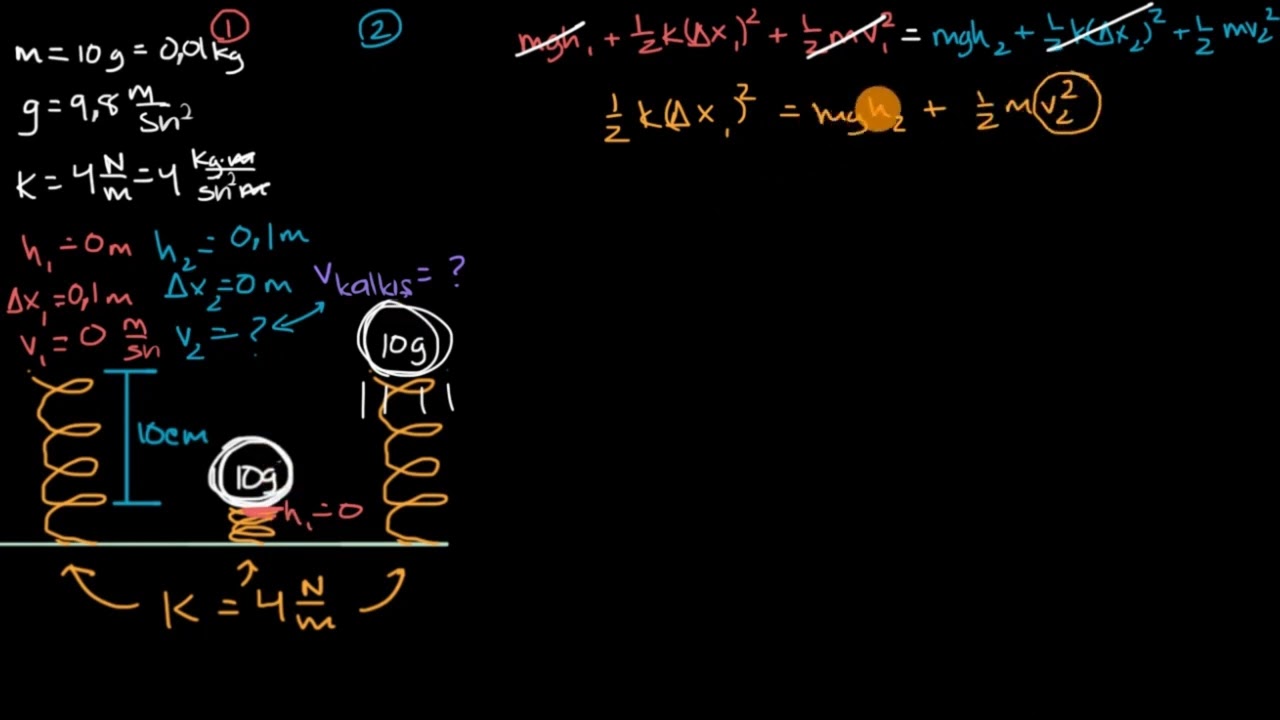 ① ②
m = 10 g = 0,01 kg
g = 9,8 m/sn²
K = 4 N/m = 4 kg·m/sn²m
h₁ = 0 m h₂ = 0,1 m
Δx₁ = 0,1 m Δx₂ = 0 m
v₁ = 0 m/sn v₂ = ?
v kalkış = ?
10 g
10 cm
10 g
h₁ = 0
K = 4 N/m
mgh₁ + ½ k(Δx₁)² + ½ mv₁² = mgh₂ + ½ k(Δx₂)² + ½ mv₂²
½ k(Δx₁)² = mgh₂ + ½ m v₂²